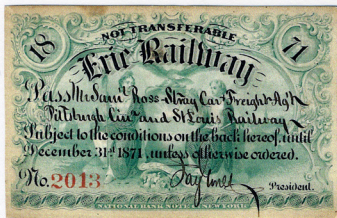 NOT TRANSFERABLE
18 71
Erie Railway
Pass Mr. Sam'l Ross - Stray Car & Freight Ag't
Pittsburgh Cin. and St Louis Railway
Subject to the conditions on the back hereof, until
December 31st 1871, unless otherwise ordered.
No. 2013 Jay Gould President.
NATIONAL BANK NOTE CO. NEW YORK